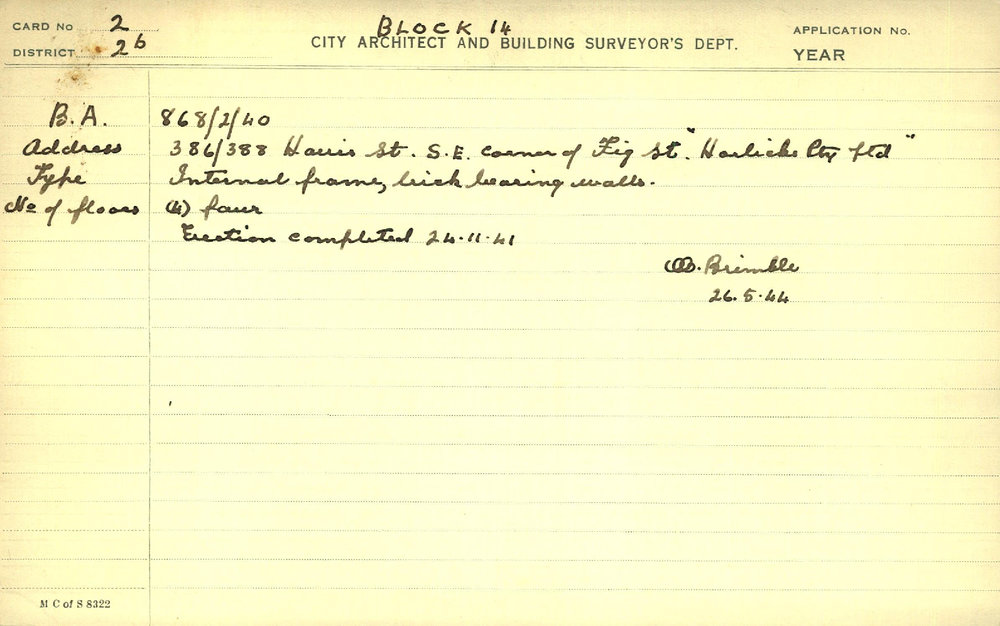 CARD No 2 BLOCK 14 APPLICATION No.
DISTRICT 2b CITY ARCHITECT AND BUILDING SURVEYOR'S DEPT. YEAR
B.A. 868/2/40
Address 386/388 Harris St. S.E. corner of Fig St. "Horlicks Pty Ltd"
Type Internal frame, brick bearing walls.
No of floors (4) four
Erection completed 24.11.41
Brimble
26.5.44
M C of S 8322